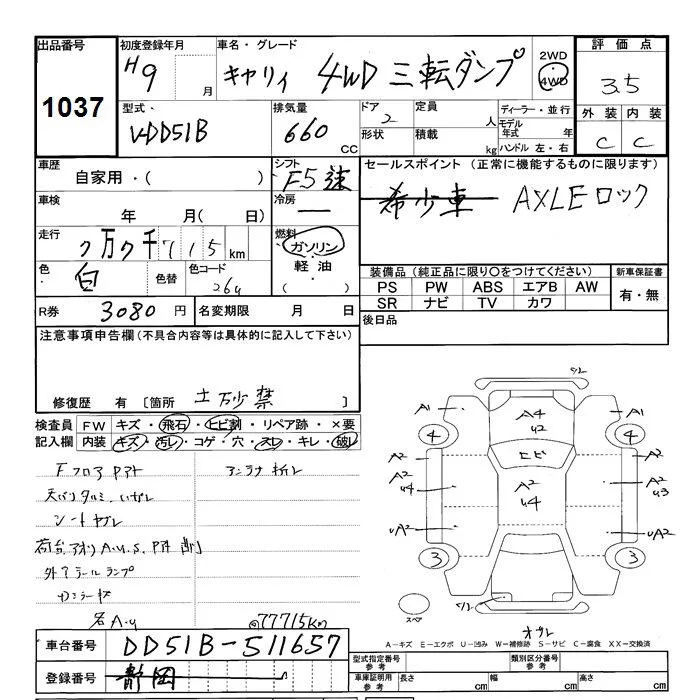 出品番号
1037
初度登録年月
H9 月
車名・グレード
キャリィ 4WD 三転ダンプ
2WD
4WD
評価点
3.5
型式・
V-DD51B
排気量
660 CC
ドア
2
定員
人
形状
積載
kg
ディーラー・並行
モデル年式 年
ハンドル 左・右
外装 内装
C C
車歴
自家用・( )
シフト
F5速
セールスポイント (正常に機能するものに限ります)
希少車 AXLEロック
車検
年 月(日)
冷房
走行
7万7千715km
燃料
ガソリン
軽油
( )
色
白
色替
色コード
26U
装備品(純正品に限り〇をつけてください)
新車保証書
PS PW ABS エアB AW
SR ナビ TV カワ
有・無
R券 3080円
名変期限 月 日
後日品
注意事項申告欄(不具合内容等は具体的に記入して下さい)
修復歴 有 [箇所 土砂禁 ]
検査員記入欄
FW キズ・飛石・ヒビ割・リペア跡・×要
内装 キズ・汚レ・コゲ・穴・スレ・キレ・破レ
Fフロア Pアト
アンテナ折レ
シートヤブレ
荷台アオリ A.U.S.
外アテールランプ
名A.U
@77715km
A1 A4 U2 A1
4 4
A2 ヒビ A2
A2 U4 A2 U4 A2 U3
UA2 UA2
3 3
スペア
A-キズ E-エクボ U-凹み W-補修跡 S-サビ C-腐食 XX-交換済
車台番号
DD51B-511657
登録番号
静岡
型式指定番号 参考
類別区分番号 参考
車庫証明用 参考
長さ cm
幅 cm
高さ cm